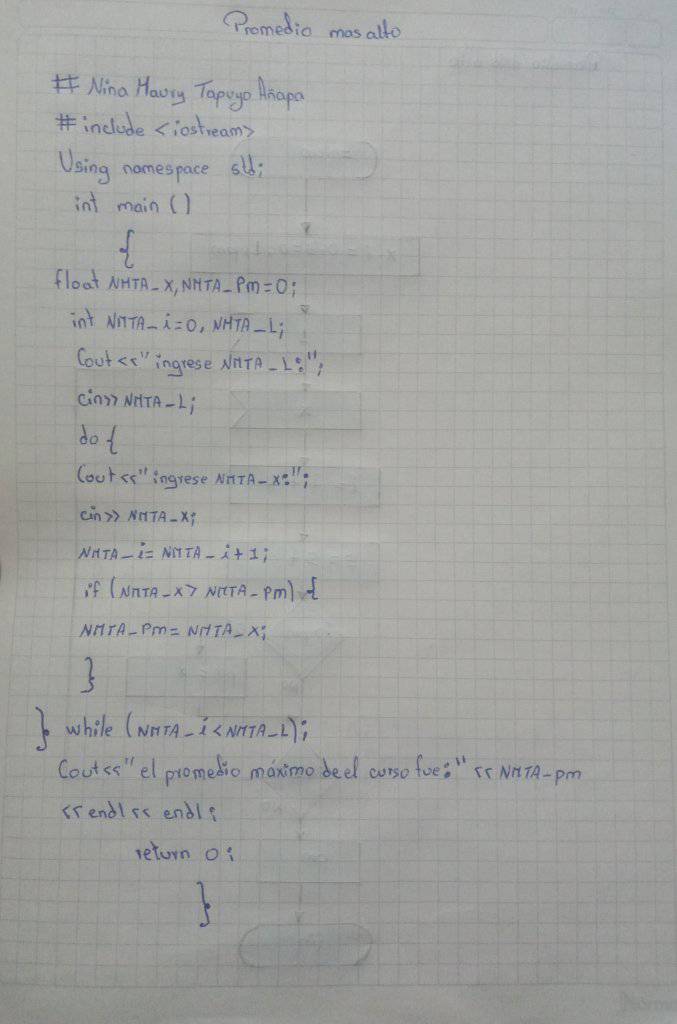 Promedio mas alto
# Nina Maury Tapuyo Añapa
# include <iostream>
Using namespace std;
int main ()
{
float NMTA_X, NMTA_Pm=0;
int NMTA_i=0, NMTA_L;
Cout <<"ingrese NMTA_L:";
cin>> NMTA_L;
do {
Cout <<"ingrese NMTA_X:";
cin>> NMTA_X;
NMTA_i= NMTA_i+1;
if (NMTA_X> NMTA_Pm) {
NMTA_Pm= NMTA_X;
}
} while (NMTA_i<NMTA_L);
Cout<<" el promedio máximo deel curso fue:" << NMTA_pm
<< endl << endl;
return 0;
}